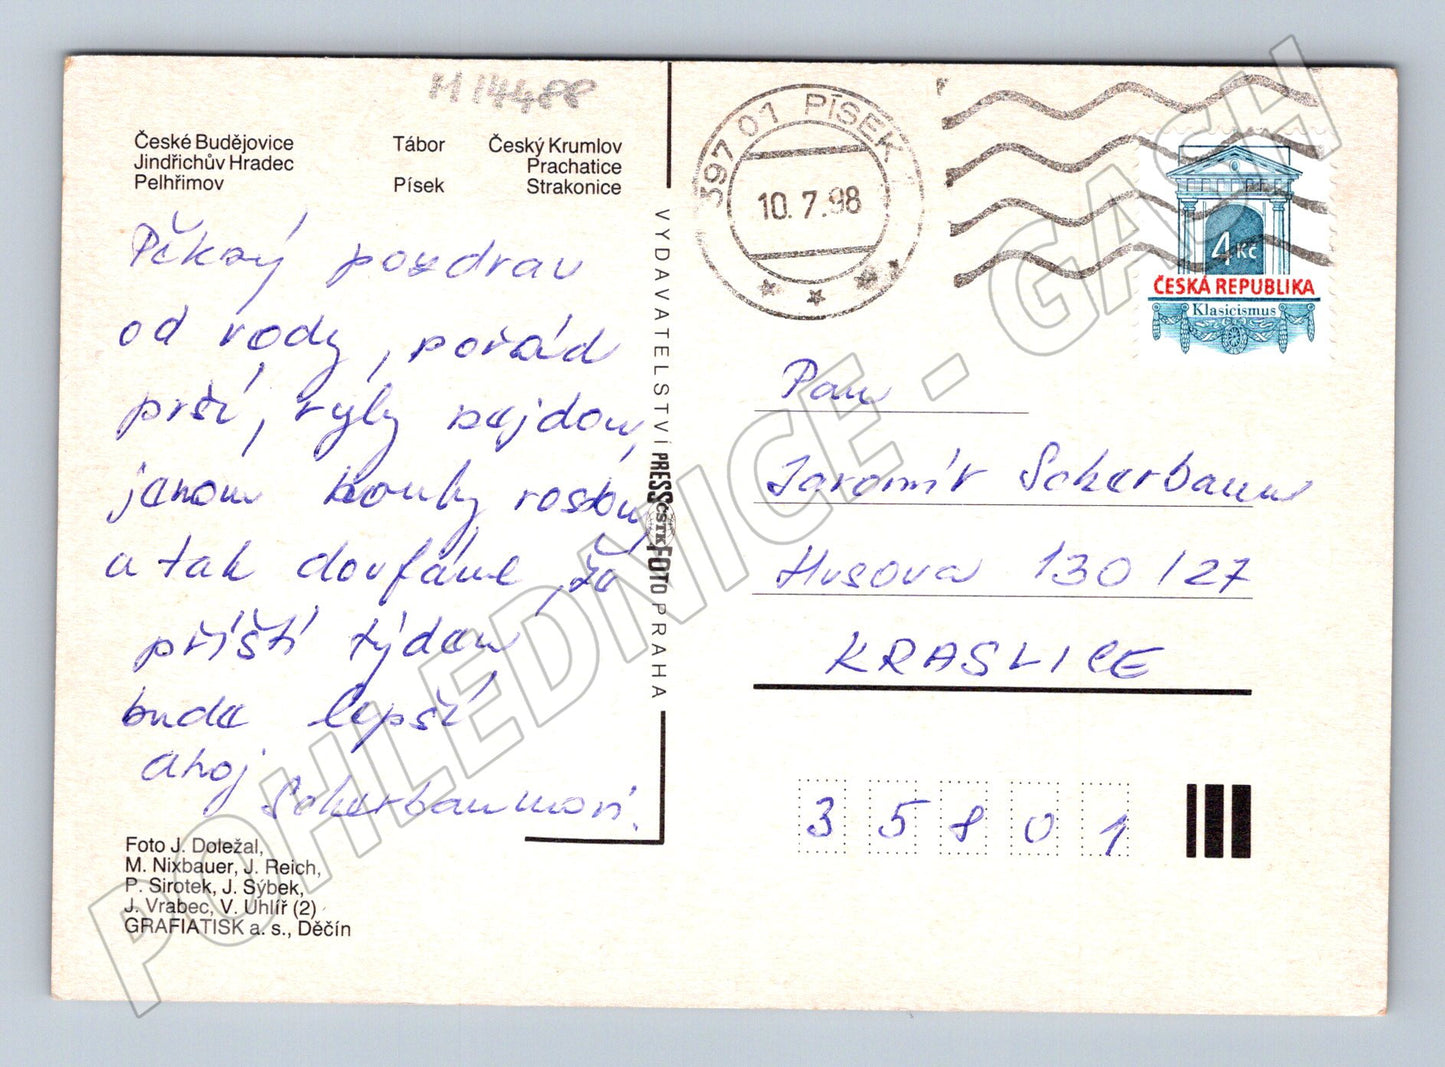 M 14488
České Budějovice Tábor Český Krumlov
Jindřichův Hradec Prachatice
Pelhřimov Písek Strakonice
Pěkný pozdrav
od vody, pořád
prší, ryby nejdou,
jenom houby rostou,
a tak doufáme, že
příští týden
bude lepší
ahoj
Scherbaumovi.
Foto J. Doležal,
M. Nixbauer, J. Reich,
P. Sirotek, J. Sýbek,
J. Vrabec, V. Uhlíř (2)
GRAFIATISK a. s., Děčín
VYDAVATELSTVÍ PRESSFOTO PRAHA
ČSTK
397 01 PÍSEK 1
10.7.98
4 Kč
ČESKÁ REPUBLIKA
Klasicismus
Pan
Jaromír Scherbaum
Husova 130/27
KRASLICE
35801
POHLEDNICE - GASH